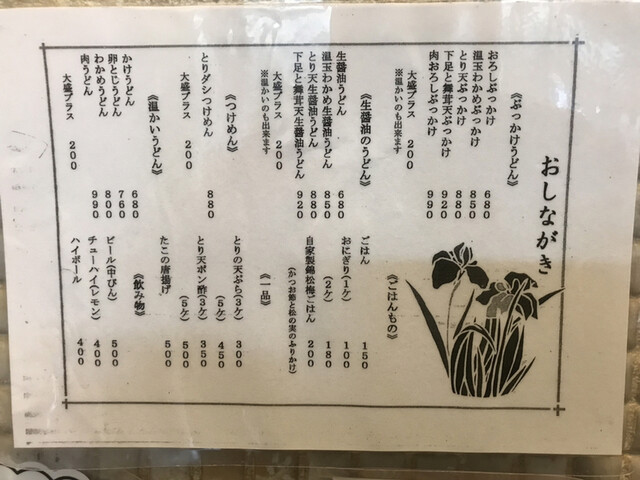 おしながき
《ぶっかけうどん》
おろしぶっかけ 680
温玉わかめぶっかけ 850
とり天ぶっかけ 880
下足と舞茸天ぶっかけ 920
肉おろしぶっかけ 990
大盛プラス 200
※温かいのも出来ます
《生醤油のうどん》
生醤油うどん 680
温玉わかめ生醤油うどん 850
とり天生醤油うどん 880
下足と舞茸天生醤油うどん 920
大盛プラス 200
※温かいのも出来ます
《つけめん》
とりダシつけめん 880
大盛プラス 200
《温かいうどん》
かけうどん 680
卵とじうどん 760
わかめうどん 800
肉うどん 990
大盛プラス 200
《ごはんもの》
ごはん 150
おにぎり(1ケ) 100
(2ケ) 180
自家製錦松梅ごはん 200
(かつお節と松の実のふりかけ)
《一品》
とりの天ぷら(3ケ) 300
(5ケ) 450
とり天ポン酢(3ケ) 350
(5ケ) 500
たこの唐揚げ 500
《飲み物》
ビール(中びん) 500
チューハイ(レモン) 400
ハイボール 400